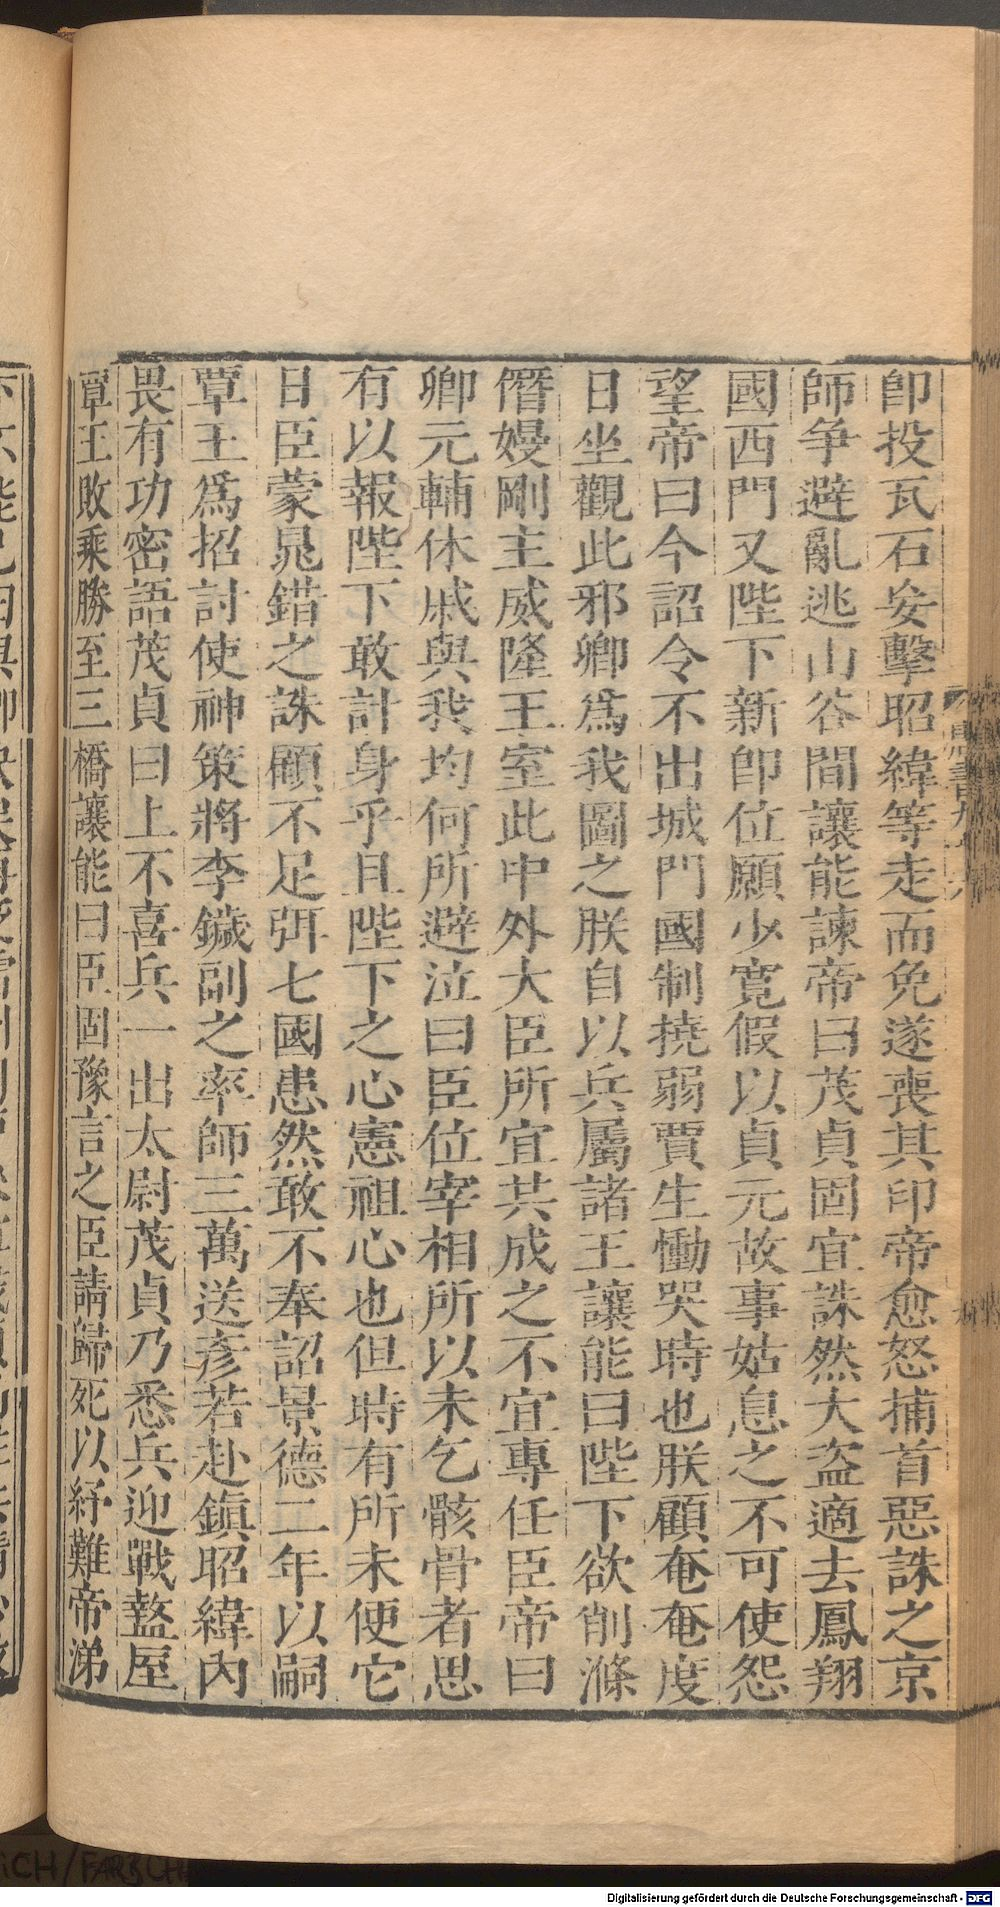 卽投瓦石妄擊昭緯等走而免遂喪其印帝愈怒捕首惡誅之京
師争避亂逃山谷間讓能諫帝曰茂貞固宜誅然大盗適去鳳翔
國西門又陛下新卽位願少寬假以貞元故事姑息之不可使怨
望帝曰今詔令不出城門國制撓弱賈生慟哭時也朕顧奄奄度
日坐觀此邪卿爲我圖之朕自以兵屬諸王讓能曰陛下欲削滌
僭嫚剛主威隆王室此中外大臣所宜共成之不宜專任臣帝曰
卿元輔休戚與我均何所避泣曰臣位宰相所以未乞骸骨者思
有以報陛下敢計身乎且陛下之心憲祖心也但時有所未便它
日臣蒙晁錯之誅顧不足弭七國患然敢不奉詔景德二年以嗣
覃王爲招討使神策將李鐬副之率師三萬送彥若赴鎭昭緯內
畏有功密語茂貞曰上不喜兵一出太尉茂貞乃悉兵迎戰盩厔
覃王敗乘勝至三橋讓能曰臣固豫言之臣請歸死以紓難帝涕
唐書九
Digitalisierung gefördert durch die Deutsche Forschungsgemeinschaft - DFG